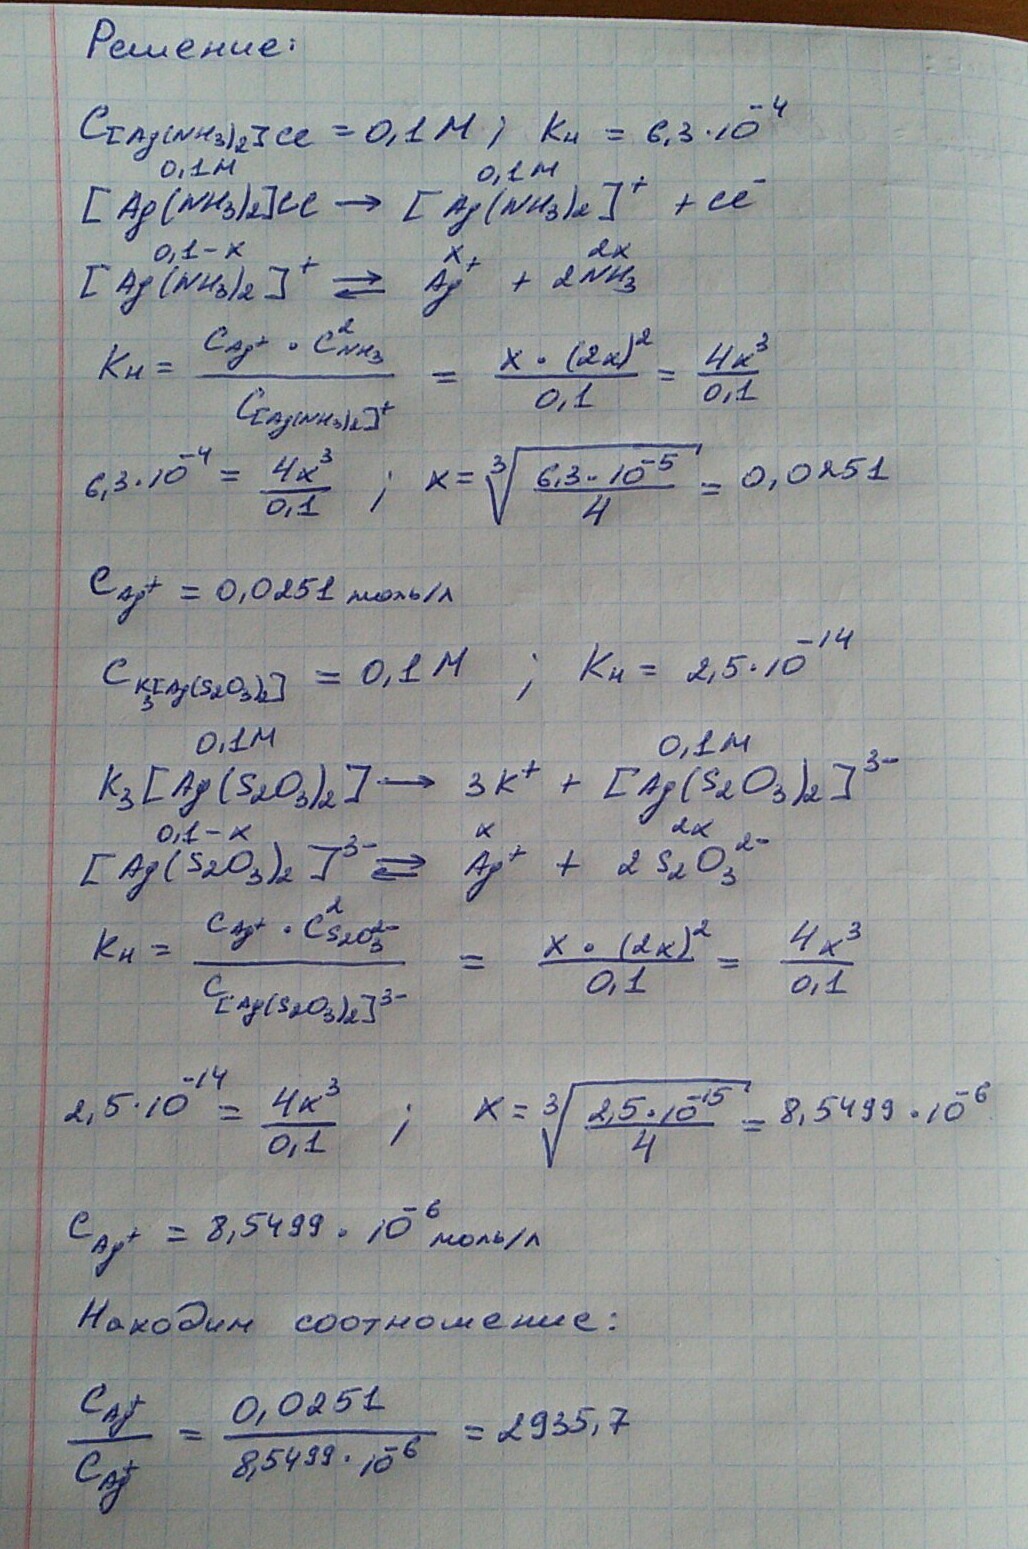 Решение:
C[Ag(NH₃)₂]Cl = 0,1 М ; Kн = 6,3·10⁻⁴
0,1М 0,1М
[Ag(NH₃)₂]Cl → [Ag(NH₃)₂]⁺ + Cl⁻
0,1-x x 2x
[Ag(NH₃)₂]⁺ ⇄ Ag⁺ + 2NH₃
Kн = (C_Ag⁺ · C²_NH₃) / C_[Ag(NH₃)₂]⁺ = (x · (2x)²) / 0,1 = 4x³ / 0,1
6,3·10⁻⁴ = 4x³ / 0,1 ; x = ∛(6,3·10⁻⁵ / 4) = 0,0251
C_Ag⁺ = 0,0251 моль/л
C_K₃[Ag(S₂O₃)₂] = 0,1 М ; Kн = 2,5·10⁻¹⁴
0,1М 0,1М
K₃[Ag(S₂O₃)₂] → 3K⁺ + [Ag(S₂O₃)₂]³⁻
0,1-x x 2x
[Ag(S₂O₃)₂]³⁻ ⇄ Ag⁺ + 2S₂O₃²⁻
Kн = (C_Ag⁺ · C²_S₂O₃²⁻) / C_[Ag(S₂O₃)₂]³⁻ = (x · (2x)²) / 0,1 = 4x³ / 0,1
2,5·10⁻¹⁴ = 4x³ / 0,1 ; x = ∛(2,5·10⁻¹⁵ / 4) = 8,5499·10⁻⁶
C_Ag⁺ = 8,5499·10⁻⁶ моль/л
Находим соотношение:
C_Ag⁺ / C_Ag⁺ = 0,0251 / 8,5499·10⁻⁶ = 2935,7